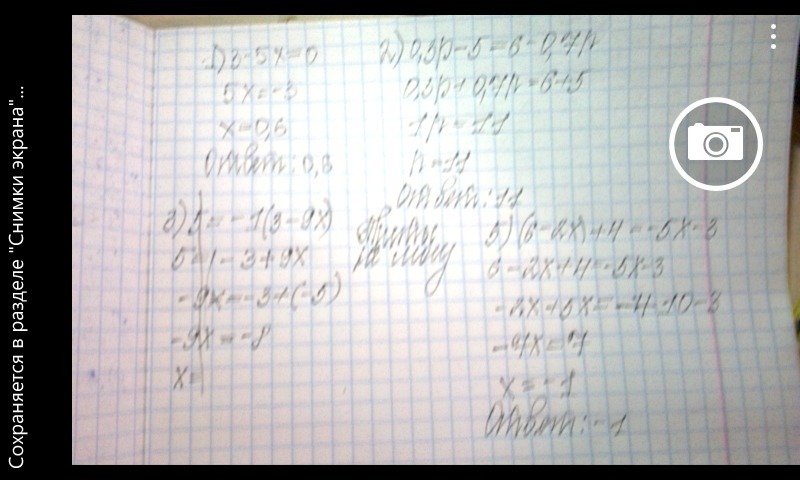 Сохраняется в разделе "Снимки экрана"...
1) 3-5x=0
5x=-3
x=0,6
Ответ: 0,6
2) 0,3p-5=6-0,7p
0,3p+0,7p=6+5
1p=11
p=11
Ответ: 11
3) 5=-1(3-9x)
-9x=-3+(-5)
-9x=-8
x=
5) (6-2x)+4=-5x-3
6-2x+4=-5x-3
x=-1
Ответ: -1